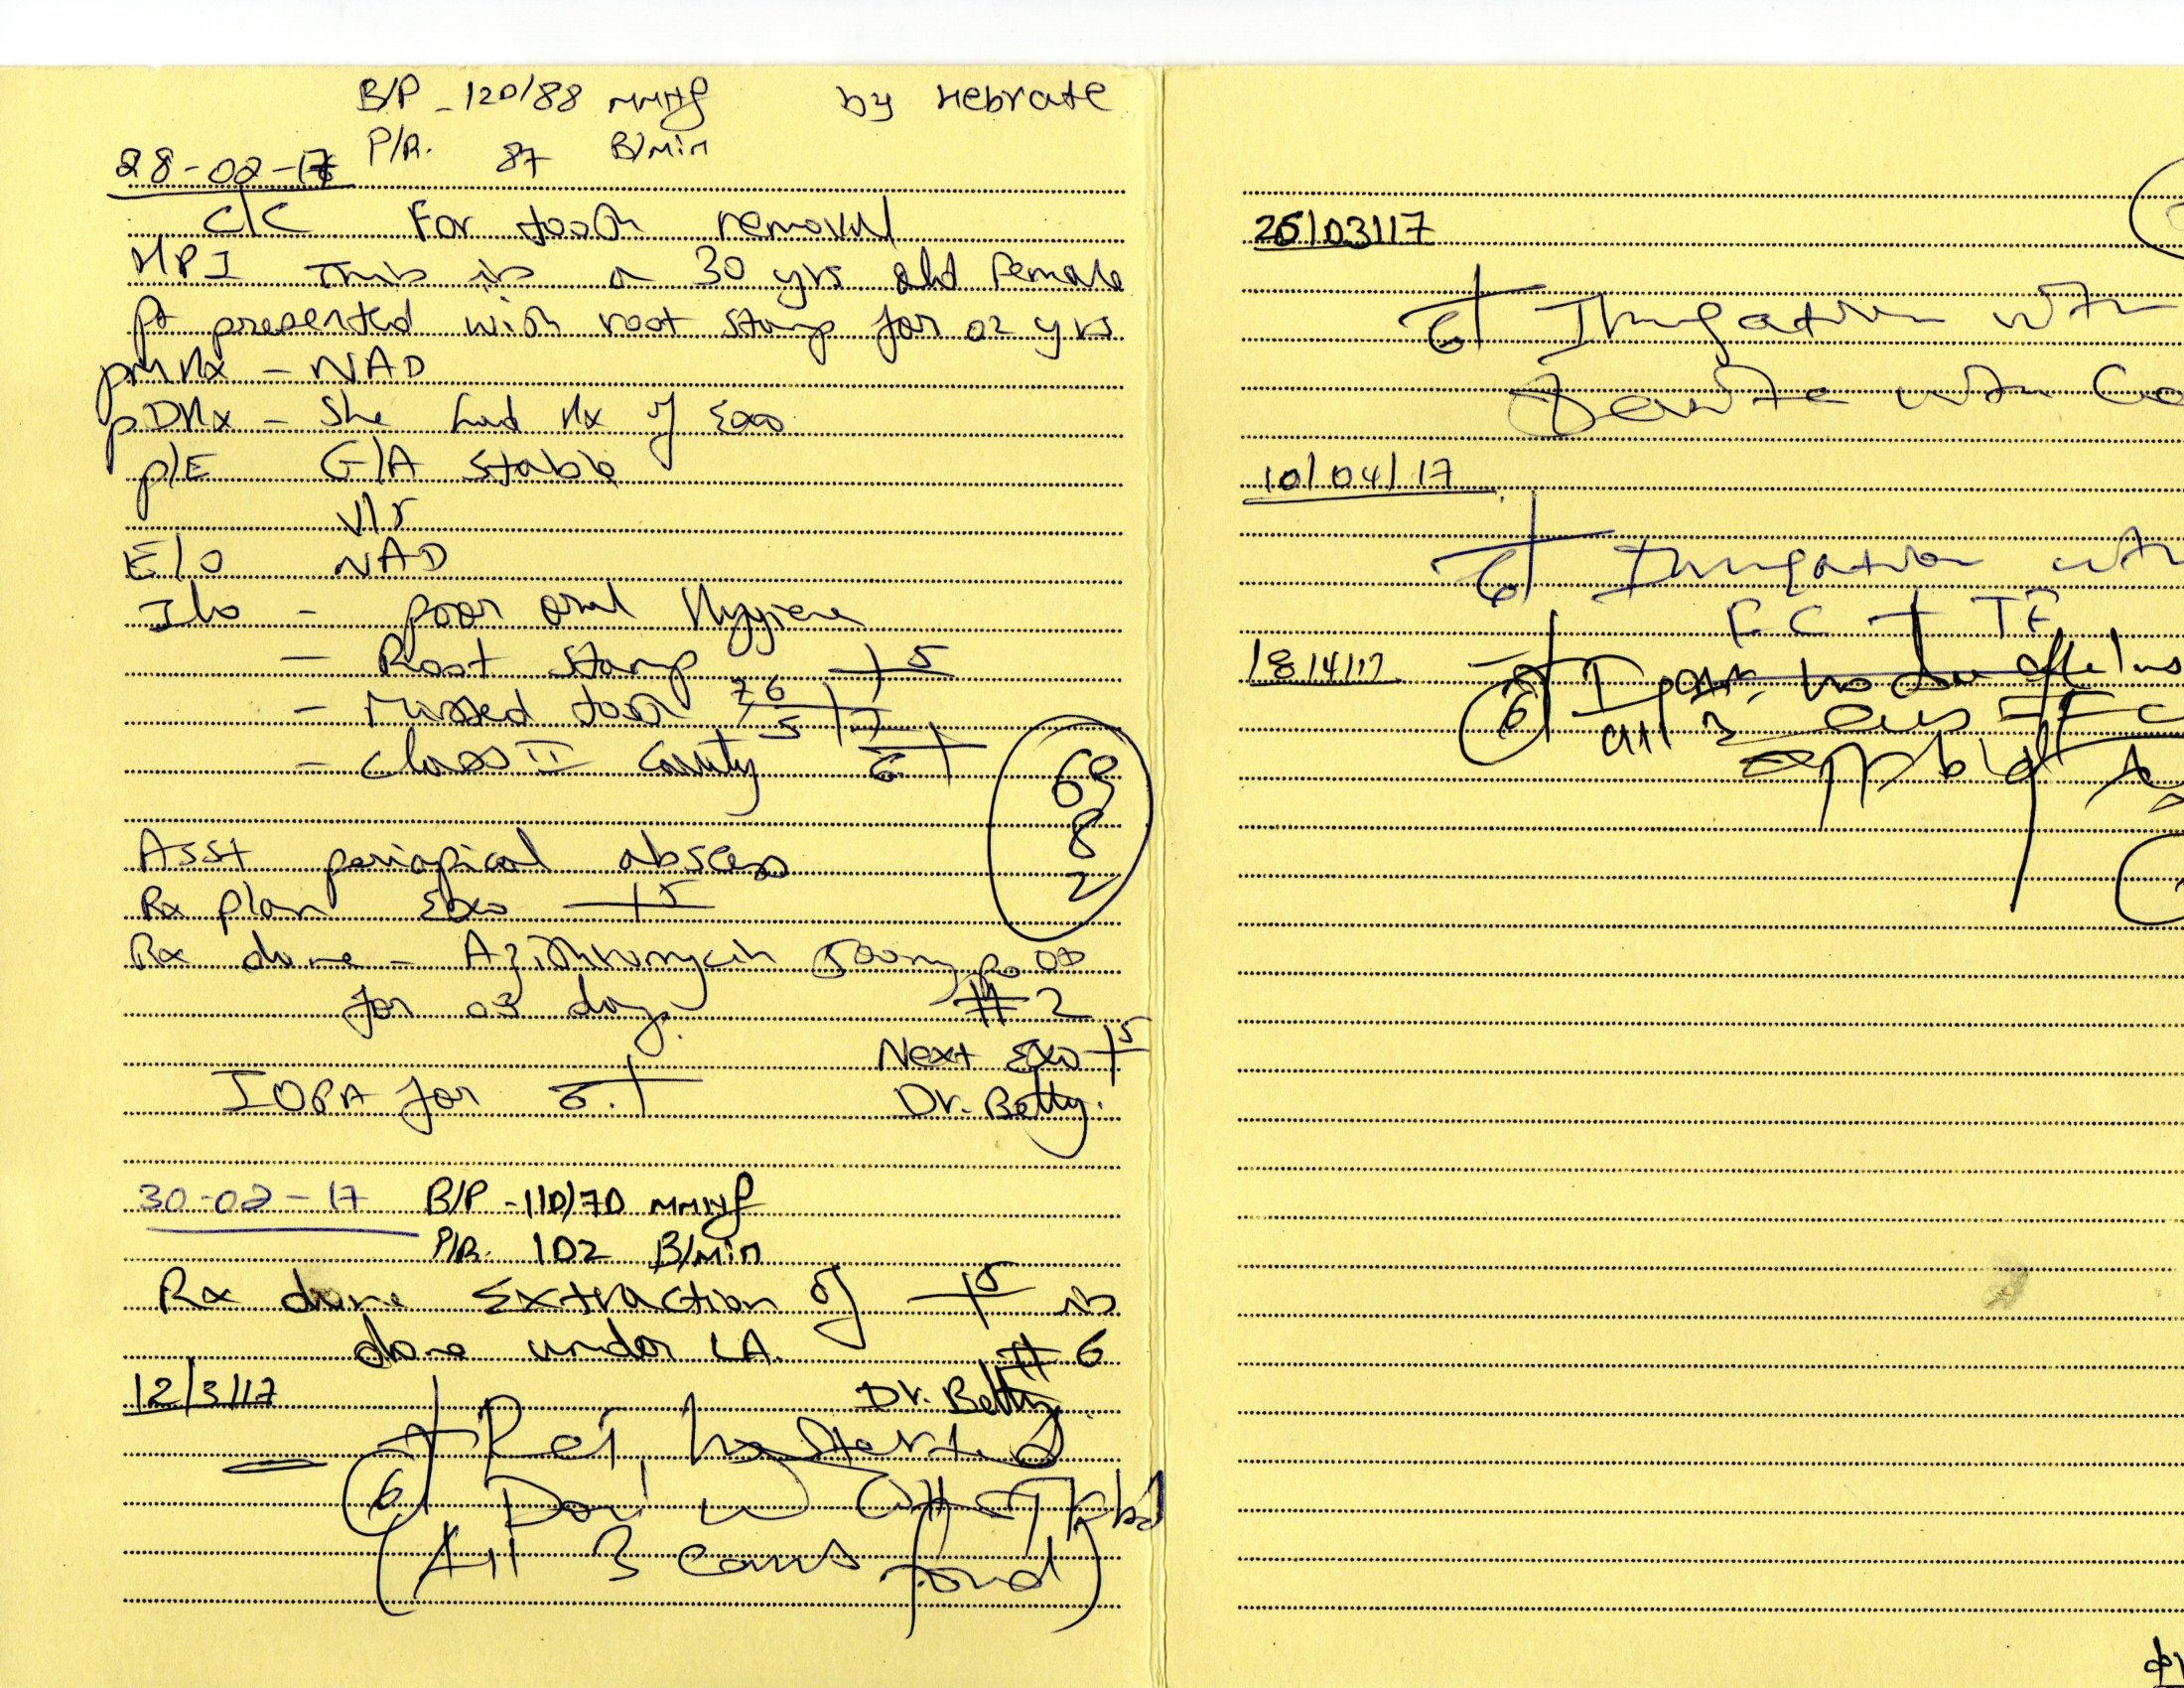 B/P - 120/88 mmHg by Hebrate
P/R. 87 B/min
28-02-17
C/C For tooth removal
HPI This is a 30 yrs old female
pt presented with root stump for 02 yrs
pMHx - NAD
pDHx - She had Hx of Exo
p/E G/A Stable
V/S
E/O NAD
I/o - poor oral Hygiene
- Root stamp 5
- Missed tooth 7 6
5 7
- class II cavity 6
68
8
2
Asst periapical abscess
Rx plan Exo 5
Rx done - Azithromycin 500mg po OD
for 03 day. #2
Next Exo 5
IOPA for 6 Dr. Betty.
30-02-17 B/P - 110/70 mmHg
P/R. 102 B/min
Rx done Extraction of 5 is
done under LA. #6
12/3/17 Dr. Betty
6 started
(All 3 found)
26/03/17
6 Irrigation with
with
10/04/17
6 Irrigation with
FC + TF
18/4/17
6
all 3